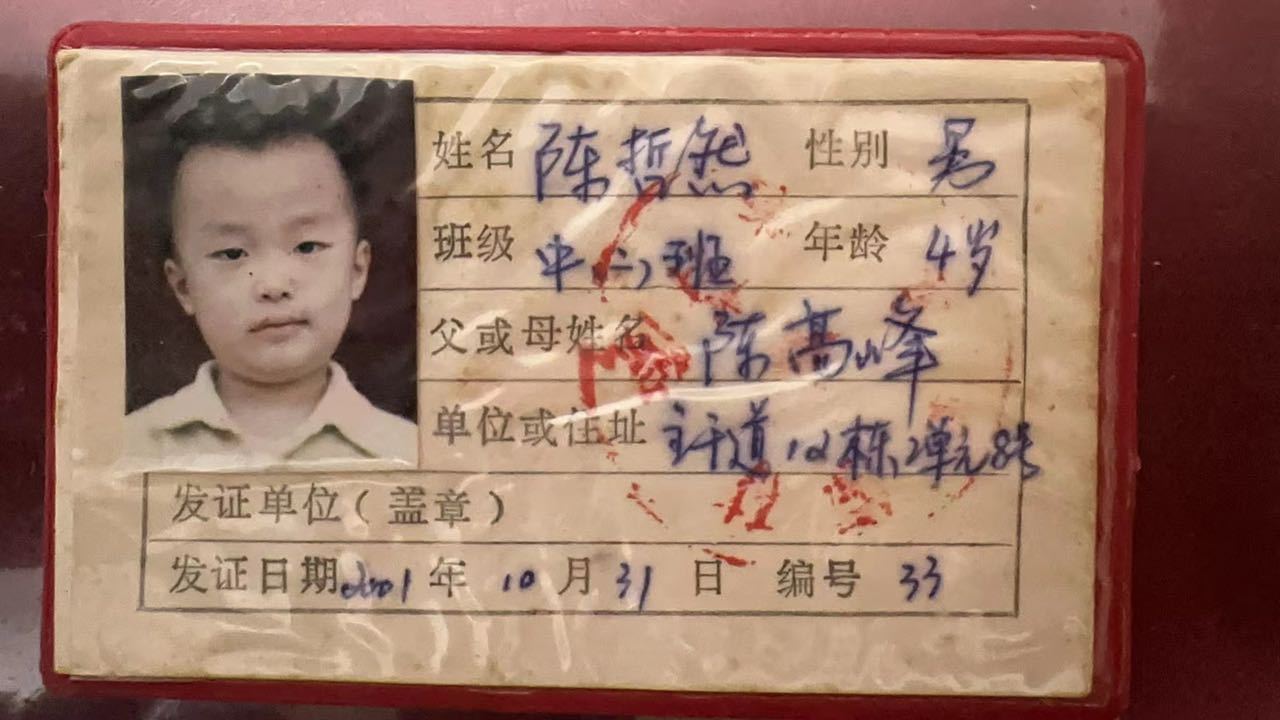 姓名 陈哲然 性别 男
班级 中(二)班 年龄 4岁
父或母姓名 陈高峰
单位或住址 主干道12栋2单元8号
发证单位(盖章)
发证日期2001年10月31日 编号 33